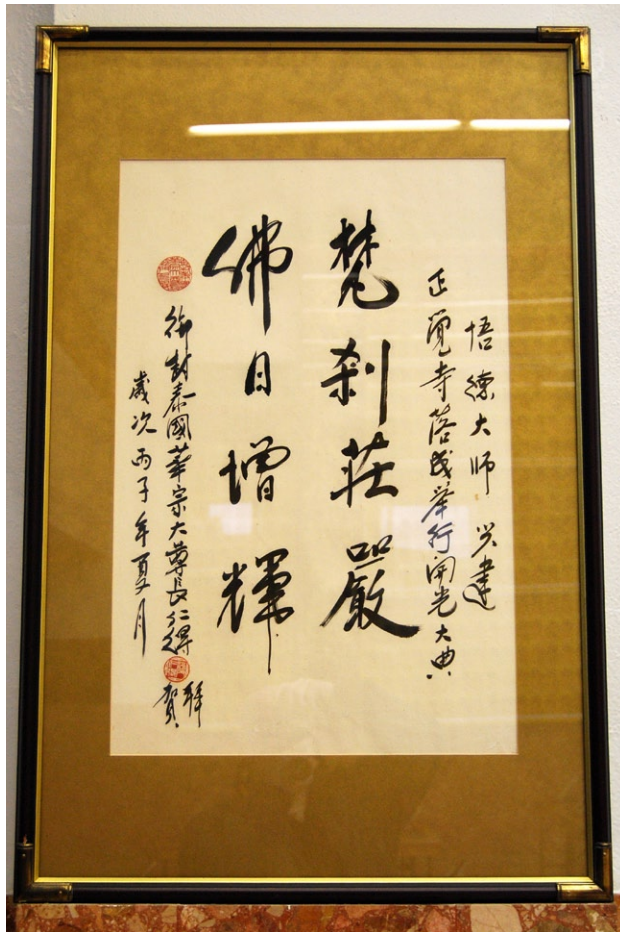 悟德大師 兴建
正覺寺落成举行開光大典
梵剎莊嚴
佛日增輝
御封泰國華宗大尊長仁得 拜賀
歲次丙子年夏月